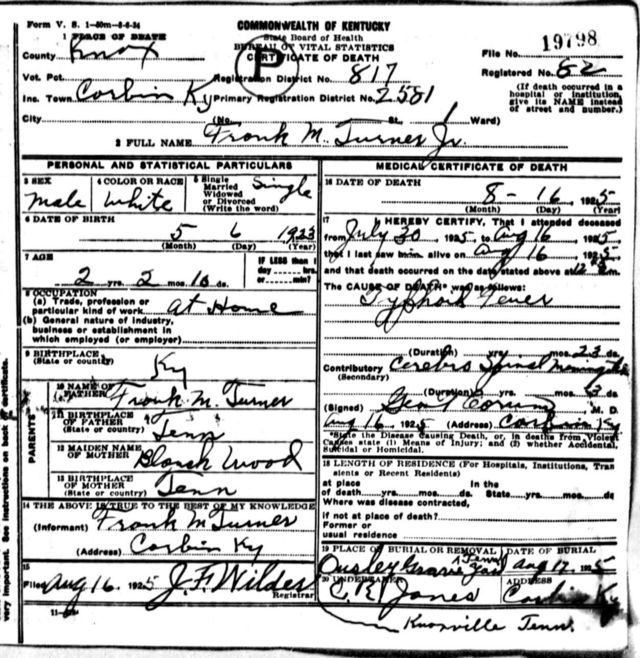 Form V. S. 1-50m-8-6-24
COMMONWEALTH OF KENTUCKY
State Board of Health
BUREAU OF VITAL STATISTICS
CERTIFICATE OF DEATH
P
1 PLACE OF DEATH
County Knox
File No. 19798
Vot. Pct. Registration District No. 817
Registered No. 82
Inc. Town Corbin Ky Primary Registration District No. 2581
(If death occurred in a hospital or institution, give its NAME instead of street and number.)
City (No. St., Ward)
2 FULL NAME Frank M. Turner Jr.
PERSONAL AND STATISTICAL PARTICULARS
3 SEX
Male
4 COLOR OR RACE
White
5 Single
Married
Widowed
or Divorced
(Write the word)
Single
6 DATE OF BIRTH
5 6 1923
(Month) (Day) (Year)
7 AGE
2 yrs. 2 mos. 10 ds.
IF LESS than 1
day hrs.
or min?
8 OCCUPATION
(a) Trade, profession or
particular kind of work At Home
(b) General nature of industry,
business or establishment in
which employed (or employer)
9 BIRTHPLACE
(State or country) Ky
PARENTS
10 NAME OF
FATHER Frank M. Turner
11 BIRTHPLACE
OF FATHER
(State or country) Tenn
12 MAIDEN NAME
OF MOTHER Blanch Wood
13 BIRTHPLACE
OF MOTHER
(State or country) Tenn
14 THE ABOVE IS TRUE TO THE BEST OF MY KNOWLEDGE
(Informant) Frank M Turner
(Address) Corbin Ky
15
Filed Aug 16 1925 J. F. Wilder
Registrar
MEDICAL CERTIFICATE OF DEATH
16 DATE OF DEATH
8 - 16, 1925
(Month) (Day) (Year)
17 I HEREBY CERTIFY, That I attended deceased
from July 30, 1925, to Aug 16, 1925,
that I last saw him alive on Aug 16, 1925,
and that death occurred on the date stated above at 12
The CAUSE OF DEATH* was as follows:
Typhoid Fever
(Duration) yrs. mos. 23 ds.
Contributory Cerebro Spinal Meningitis
(Secondary)
(Duration) yrs. mos. 3 ds.
(Signed) M. D.
Aug 16, 1925 (Address) Corbin Ky
*State the Disease Causing Death, or, in deaths from Violent
Causes state (1) Means of Injury; and (2) whether Accidental,
Suicidal or Homicidal.
18 LENGTH OF RESIDENCE (For Hospitals, Institutions, Tran
sients or Recent Residents)
At place In the
of death yrs. mos. ds. State yrs. mos. ds.
Where was disease contracted,
if not at place of death?
Former or
usual residence
19 PLACE OF BURIAL OR REMOVAL
Ousley Grave Yard Tenn
DATE OF BURIAL
Aug 17, 1925
20 UNDERTAKER
C. E. Jones
ADDRESS
Corbin Ky
Knoxville Tenn.
very important. See instructions on back of certificate.